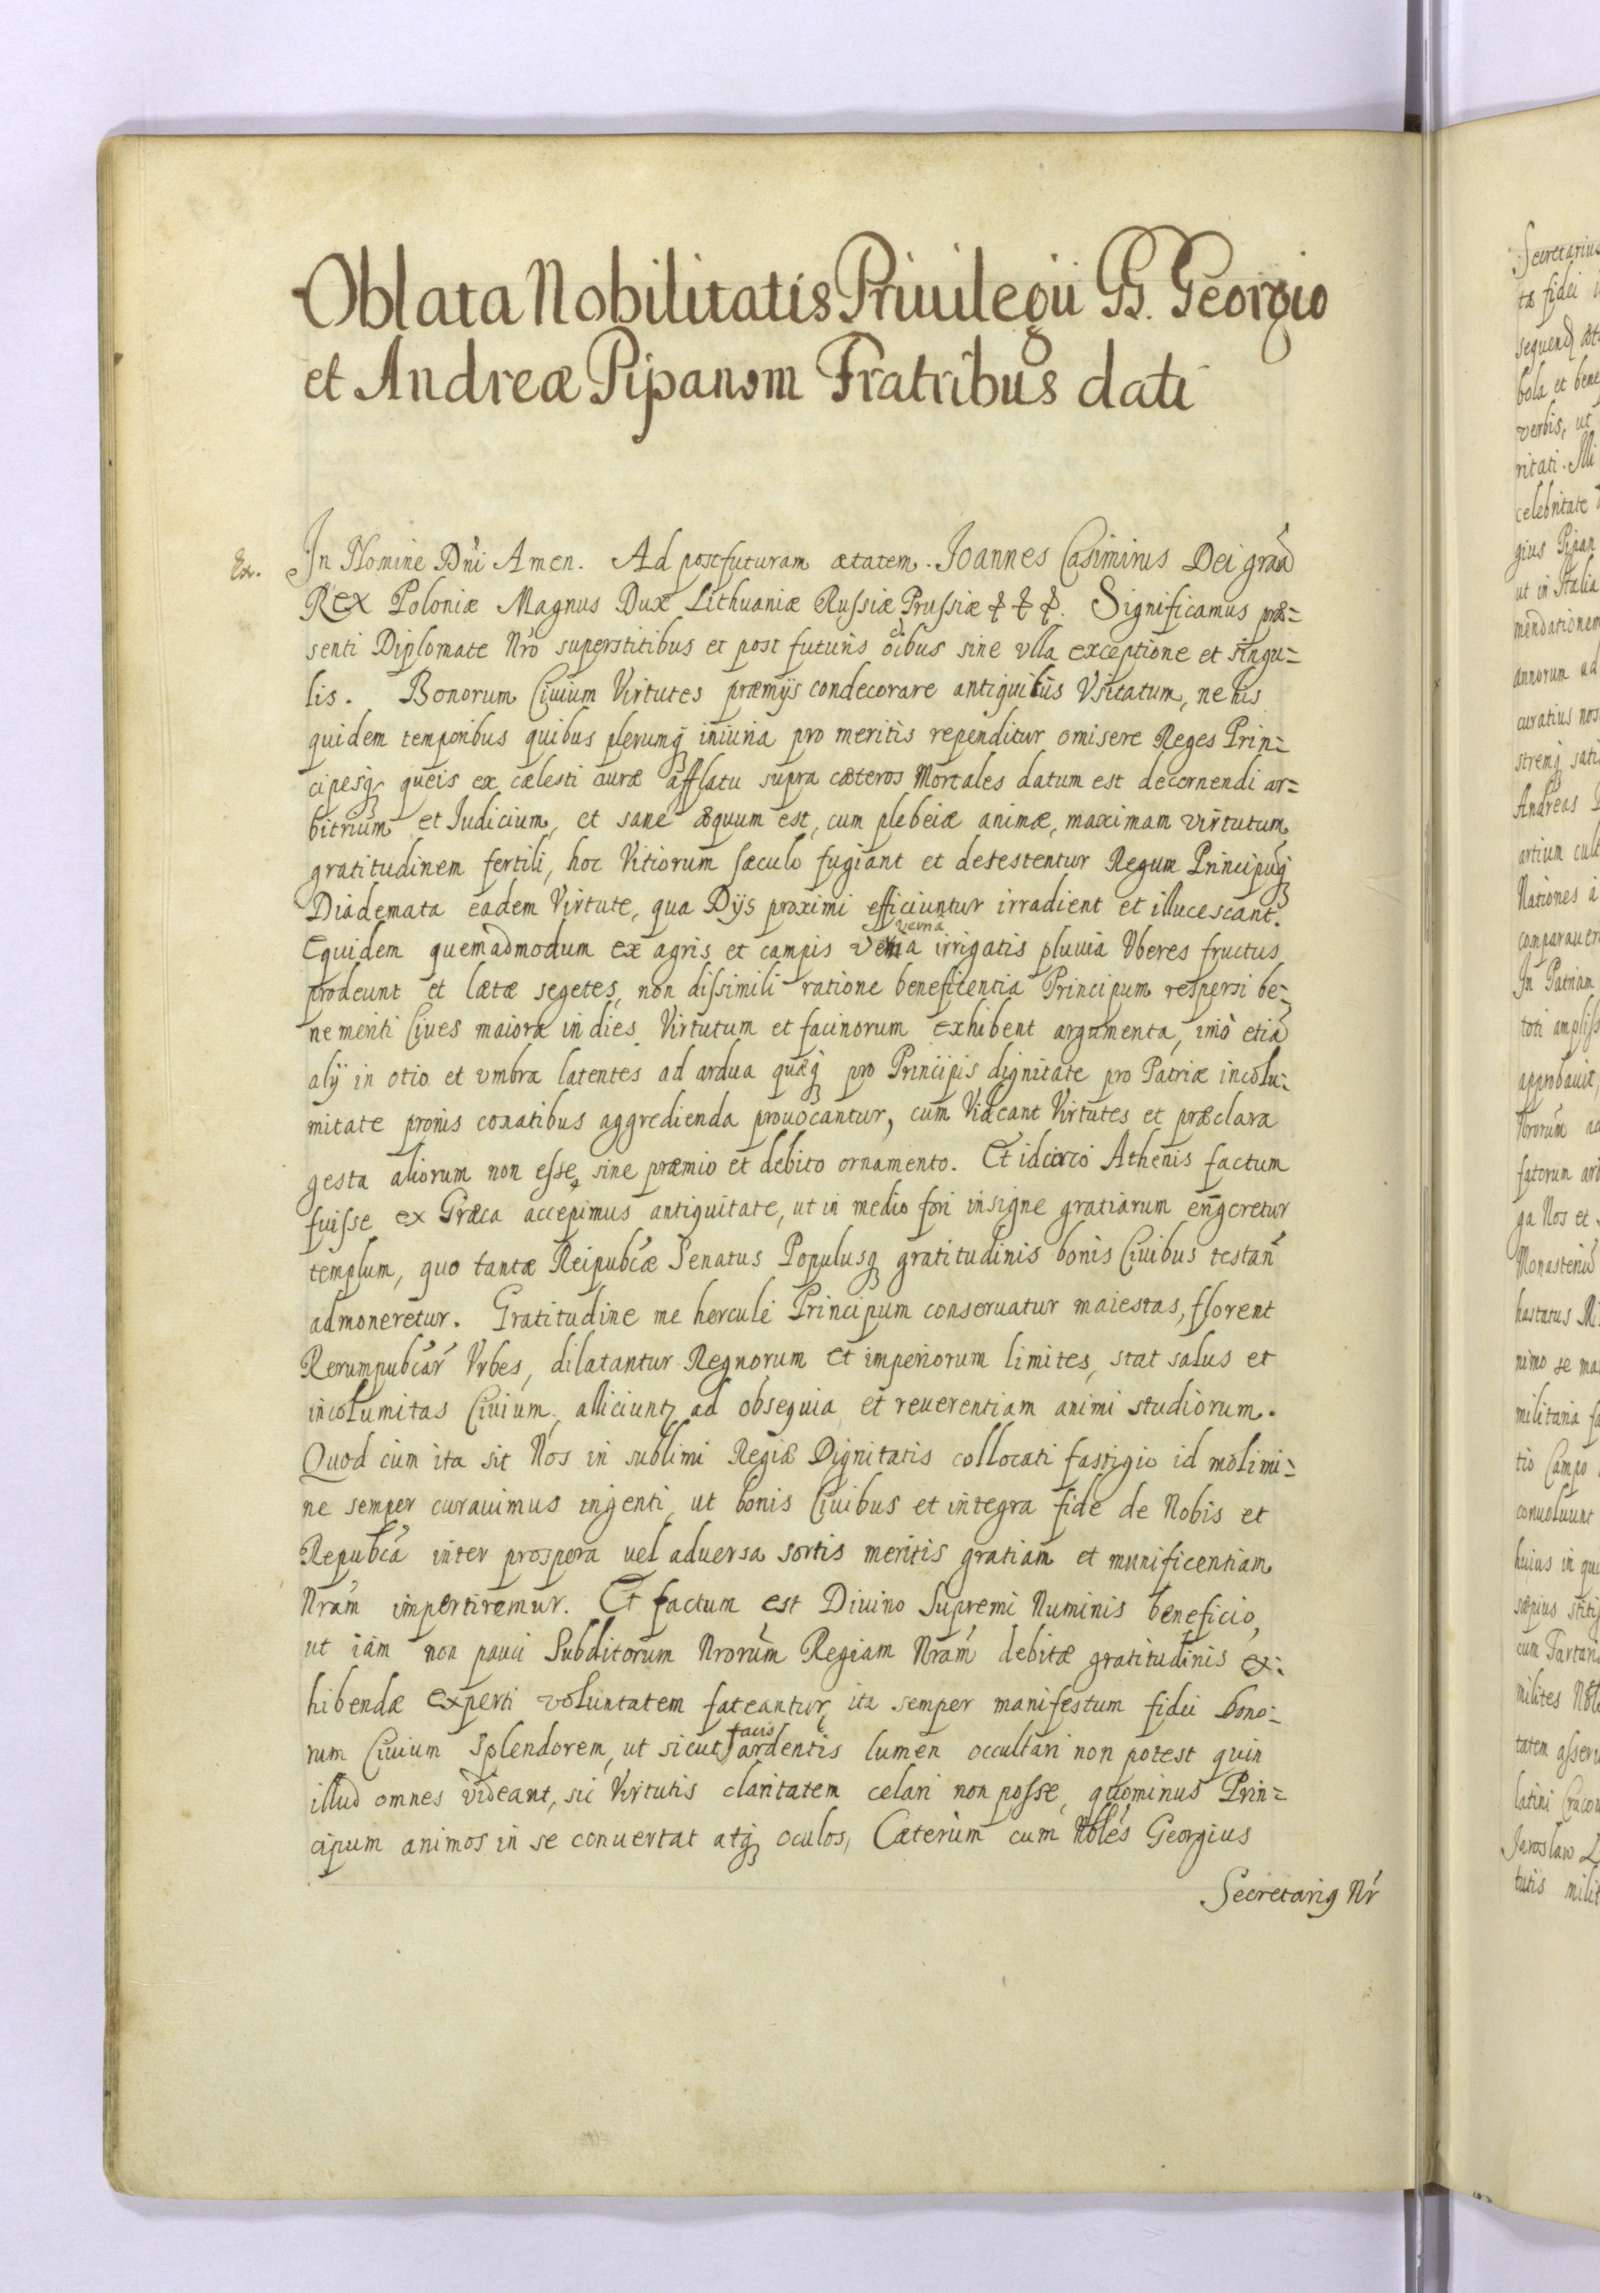 Oblata Nobilitatis Priuilegii GG. Georgio
et Andreæ Pipanom Fratribus dati
Ex. In Nomine Dńi Amen. Ad postfuturam ætatem. Ioannes Casimirus Dei grãa
Rex Poloniæ Magnus Dux Lithuaniæ Russiæ Prussiæ & & &. Significamus præ=
senti Diplomate Nŕo superstitibus et post futuris oi͠bus sine vlla exceptione et singu=
lis. Bonorum Ciuium Virtutes præmijs condecorare antiquitùs Vsitatum, ne his
quidem temporibus quibus plerumq iniuria pro meritis rependitur omisere Reges Prin=
cipesq queis ex cælesti auræ afflatu supra cæteros Mortales datum est decernendi ar=
bitrium et Iudicium, et sane æquum est, cum plebeiæ animæ, maximam virtutum
gratitudinem fertili, hoc Vitiorum sæculo fugiant et detestentur Regum Principuq
Diademata eadem Virtute, qua Dijs proximi efficiuntur irradient et illucescant.
verna
Equidem quemadmodum ex agris et campis irrigatis pluuia Vberes fructus
prodeunt et lætæ segetes, non dissimili ratione beneficentia Principum respersi be=
ne meriti Ciues maiora in dies Virtutum et facinorum exhibent argumenta, imò etiã
alij in otio et vmbra latentes ad ardua quæq pro Principis dignitate pro Patriæ incolu=
mitate pronis conatibus aggredienda prouocantur, cum Videant Virtutes et præclara
gesta aliorum non esse sine præmio et debito ornamento. Et idcirco Athenis factum
fuisse ex Græca accepimus antiquitate, ut in medio fori insigne gratiarum erigeretur
templum, quo tantæ Reipubĉæ Senatus Populusq gratitudinis bonis Ciuibus testañ
admoneretur. Gratitudine me herculè Principum conseruatur maiestas, florent
Rerumpubĉar Vrbes, dilatantur Regnorum et imperiorum limites, stat salus et
incolumitas Ciuium, alliciuntʒ ad obsequia et reuerentiam animi studiorum.
Quod cùm ita sit Nos in sublimi Regiæ Dignitatis collocati fastigio id molimi=
ne semper curauimus ingenti, ut bonis Ciuibus et integra fide de Nobis et
Repubĉa inter prospera uel aduersa sortis meritis gratiam et munificentiam
Nrám impertiremur. Et factum est Diuino Supremi Numinis beneficio,
ut iàm non pauci Subditorum Nrorum̀ Regiam Nrám debitæ gratitudinis ex=
hibendæ experti voluntatem fateantur, ita semper manifestum fidei bono=
facis
rum Ciuium splendorem, ut sicut ardentis lumen occultari non potest quin
illud omnes videant, sic Virtutis claritatem celari non posse, quominus Prin=
cipum animos in se conuertat atq oculos, Cæterùm cum Nblés Georgius
Secretariq Nŕ
Secretarius
verbis, ut
celebritate
ut in Italia
annorum ad
curatius nos
Andreas
artium cult
Nationes
In Patriam
approbauit,
ga Nos et
hastatus
tio Campo
conuoluunt
huius in
milites
Jaroslaw
tutis milit